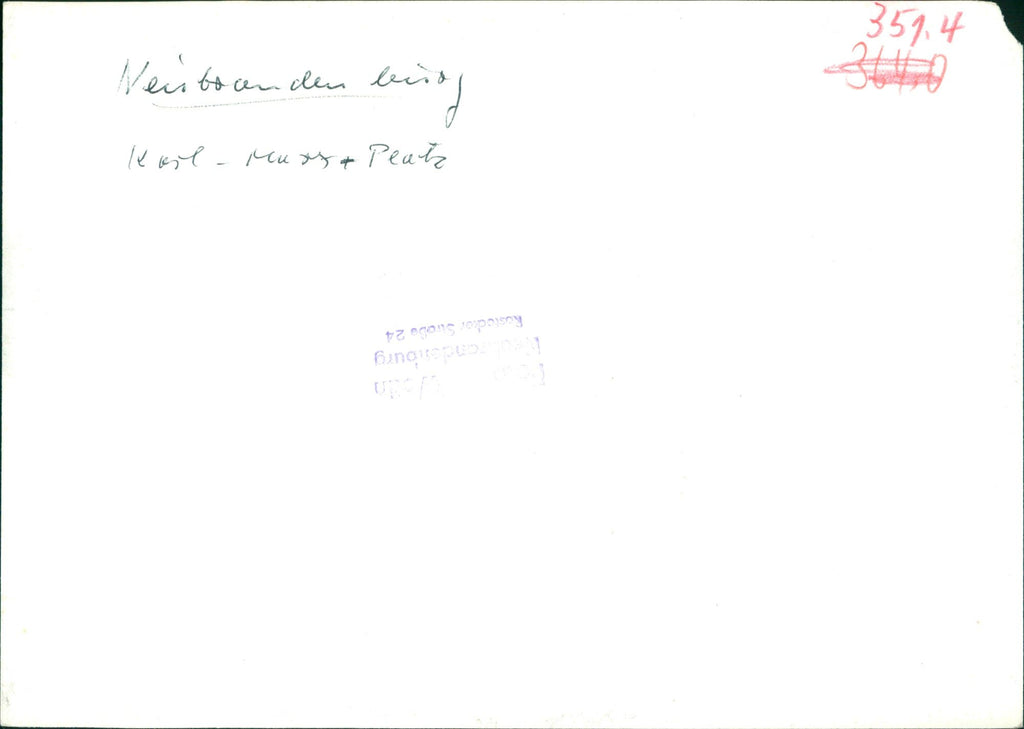 351.4
364.0
Neubrandenburg
Karl-Marx-Platz
Wolin
Neubrandenburg
Rostocker Straße 24